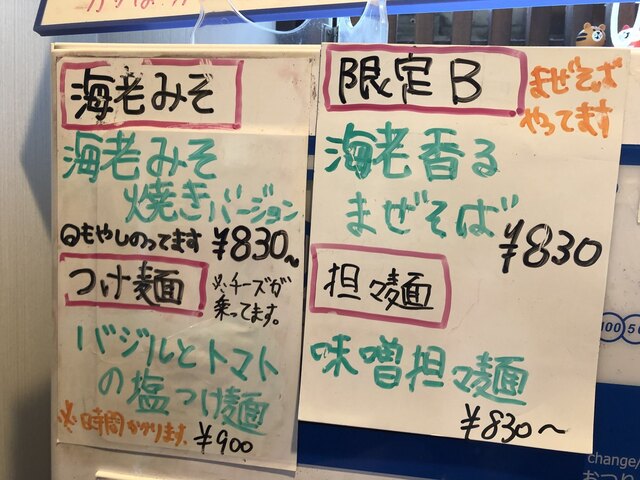 海老みそ
海老みそ
焼きバージョン
もやしのってます ¥830~
つけ麺
※チーズが
乗ってます。
バジルとトマト
の塩つけ麺
※時間かかります。
¥900
限定B
まぜそば
やってます
海老香る
まぜそば
¥830
担々麺
味噌担々麺
¥830~
100 50
change/
おつり